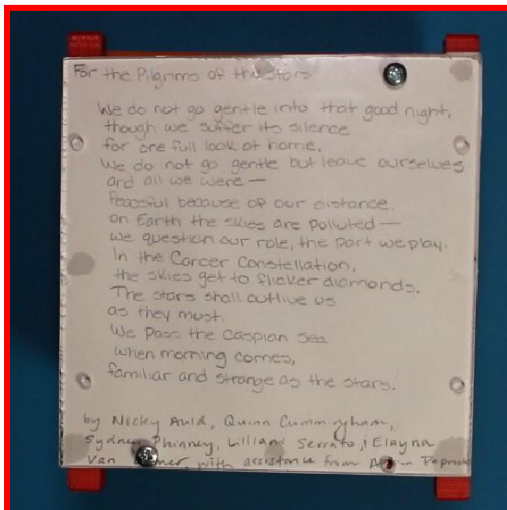 For the Pilgrims of the Stars
We do not go gentle into that good night,
though we suffer its silence
for one full look at home.
We do not go gentle but leave ourselves
and all we were—
Peaceful because of our distance.
on Earth the skies are polluted—
we question our role, the part we play.
In the Cancer Constellation,
the skies get to flicker diamonds.
The stars shall outlive us
as they must.
We pass the Caspian Sea
when morning comes,
familiar and strange as the stars.
by Nicky Auld, Quinn Cummingham,
Sydney Phinney, Lillian Serrato, Elayna
Van with assistance from